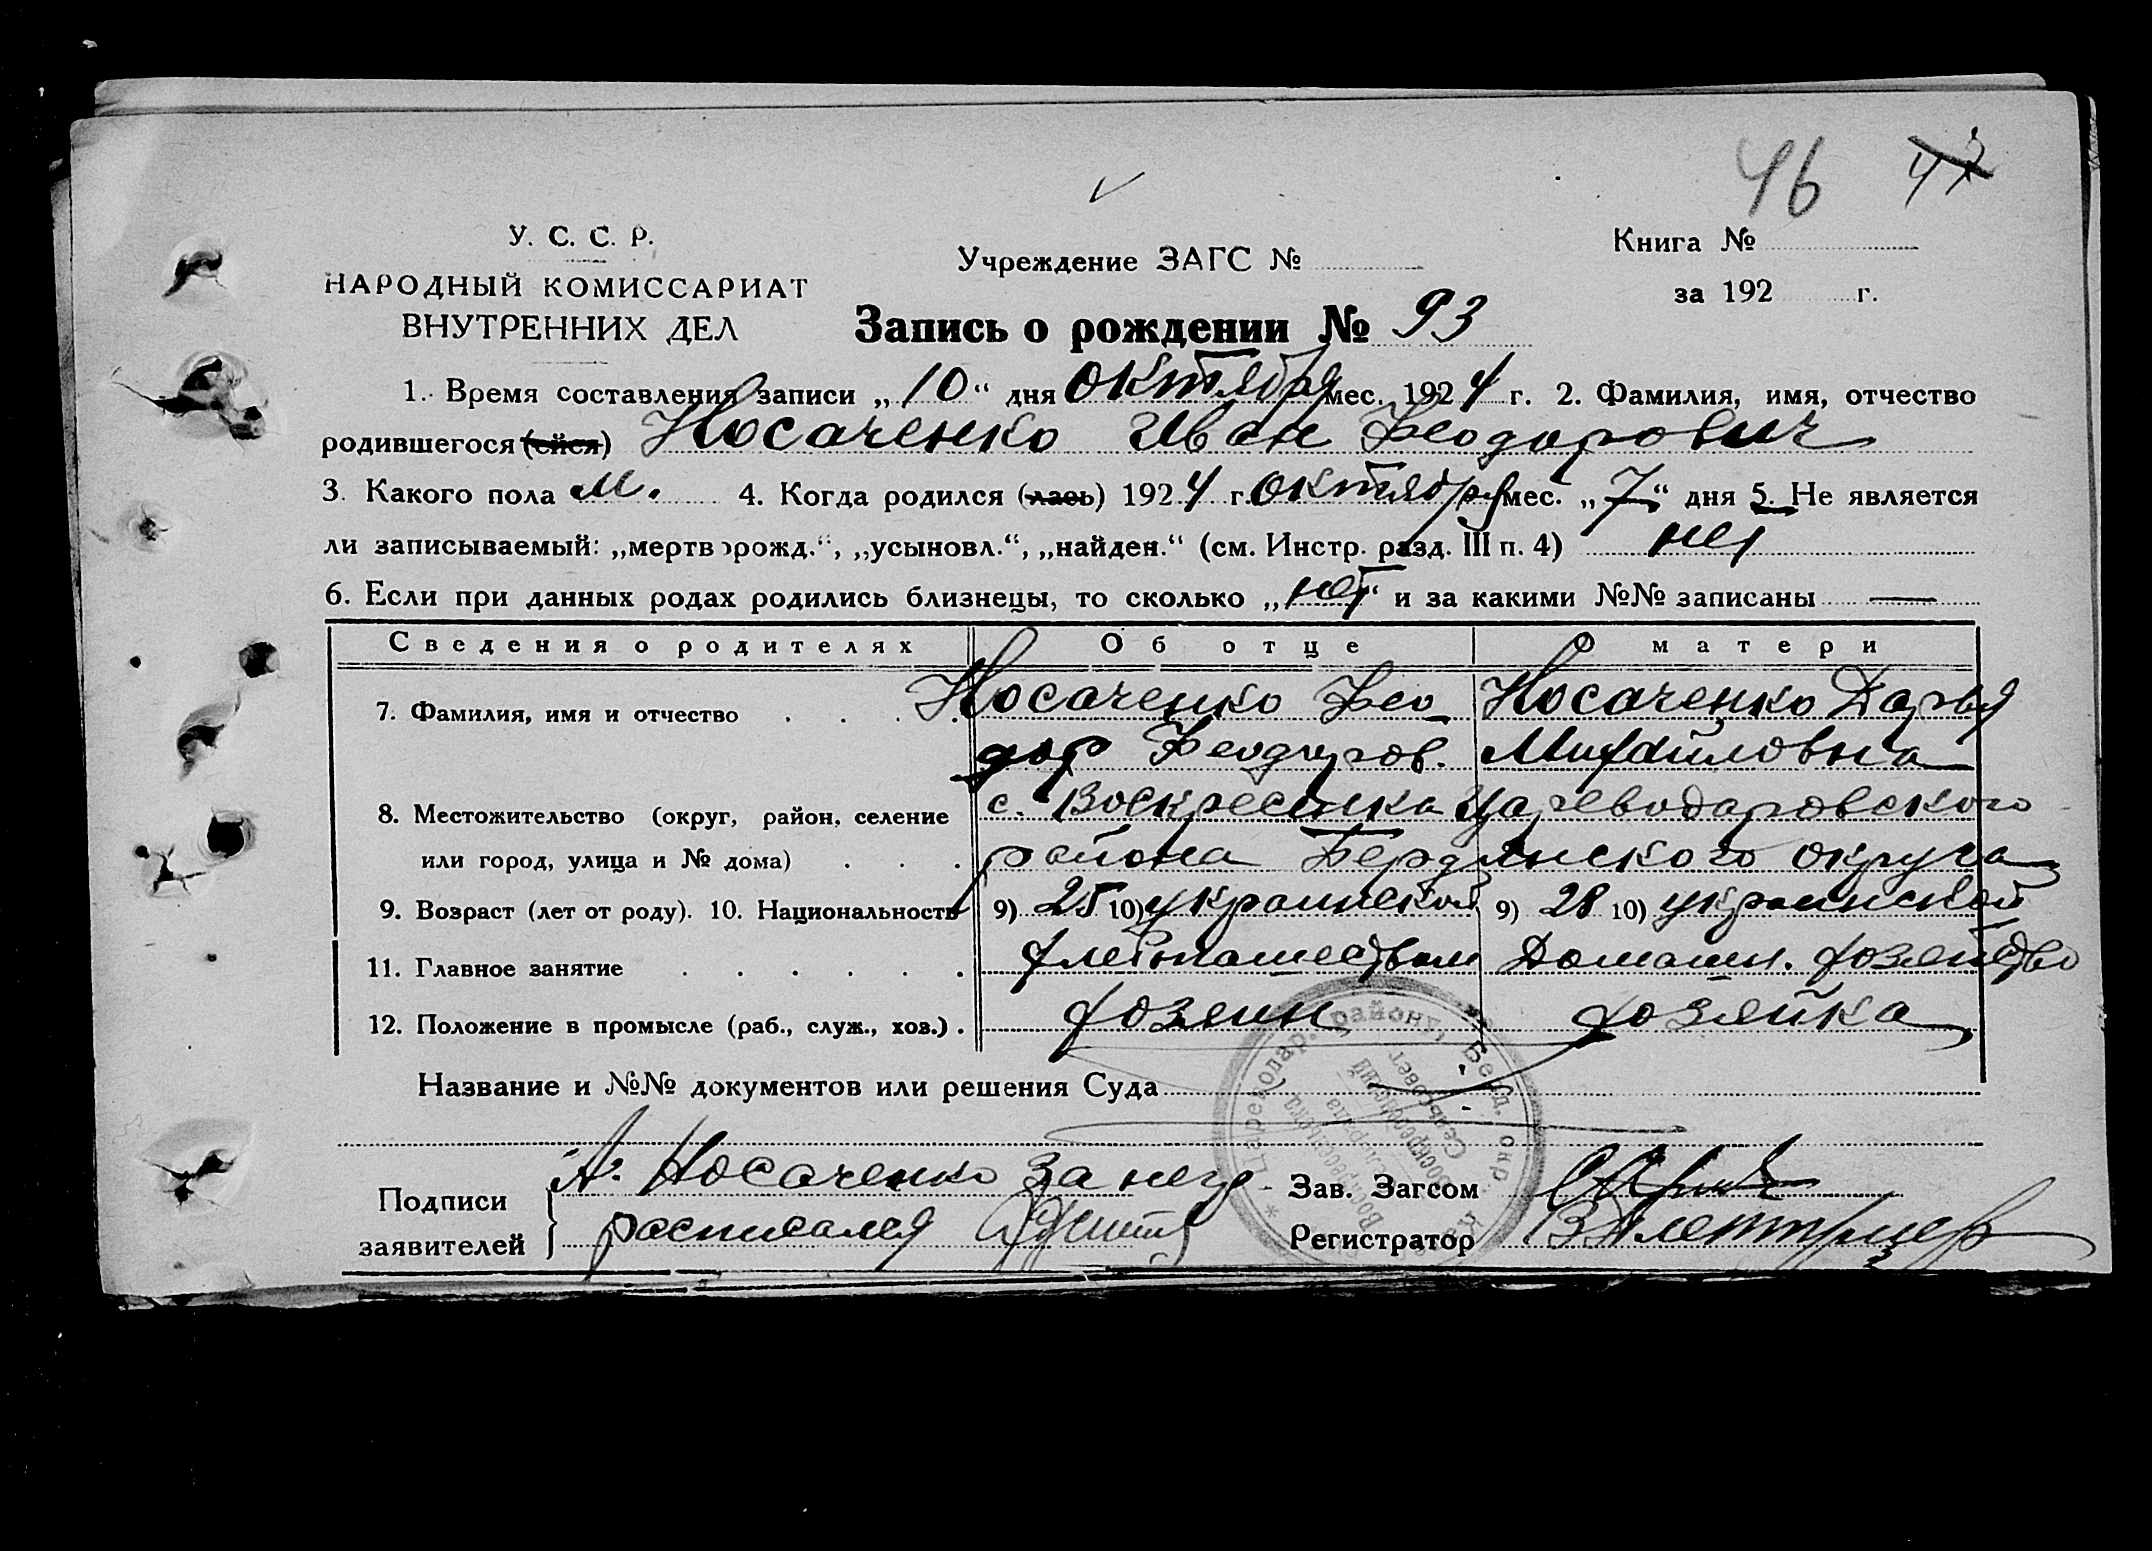 46 47
У. С. С. Р.
НАРОДНЫЙ КОМИССАРИАТ
ВНУТРЕННИХ ДЕЛ
Учреждение ЗАГС №
Книга №
за 192 г.
Запись о рождении № 93
1. Время составления записи „10“ дня октября мес. 1924 г. 2. Фамилия, имя, отчество
родившегося (ейся) Носаченко Иван Феодорович
3. Какого пола м. 4. Когда родился (лась) 1924 г. октября мес. „7“ дня 5. Не является
ли записываемый: „мертворожд.“, „усыновл.“, „найден.“ (см. Инстр. разд. III п. 4) нет
6. Если при данных родах родились близнецы, то сколько „нет“ и за какими №№ записаны —
Сведения о родителях Об отце О матери
7. Фамилия, имя и отчество . . . . Носаченко Фео- Носаченко Дарья
дор Феодоров. Михайловна
8. Местожительство (округ, район, селение с. Воскресенка Цареводаровского
или город, улица и № дома) . . . района Бердянского округа
9. Возраст (лет от роду). 10. Национальность 9) 25 10) украинской 9) 28 10) украинской
11. Главное занятие . . . . . . хлебопашеством Домашн. хозяйство
12. Положение в промысле (раб., служ., хоз.) . хозяин хозяйка
Название и №№ документов или решения Суда
Подписи заявителей
А. Носаченко за негр
расписался
Зав. Загсом
Регистратор
Цареводар. району Берд. окр.
Воскресенский
Сельсовет